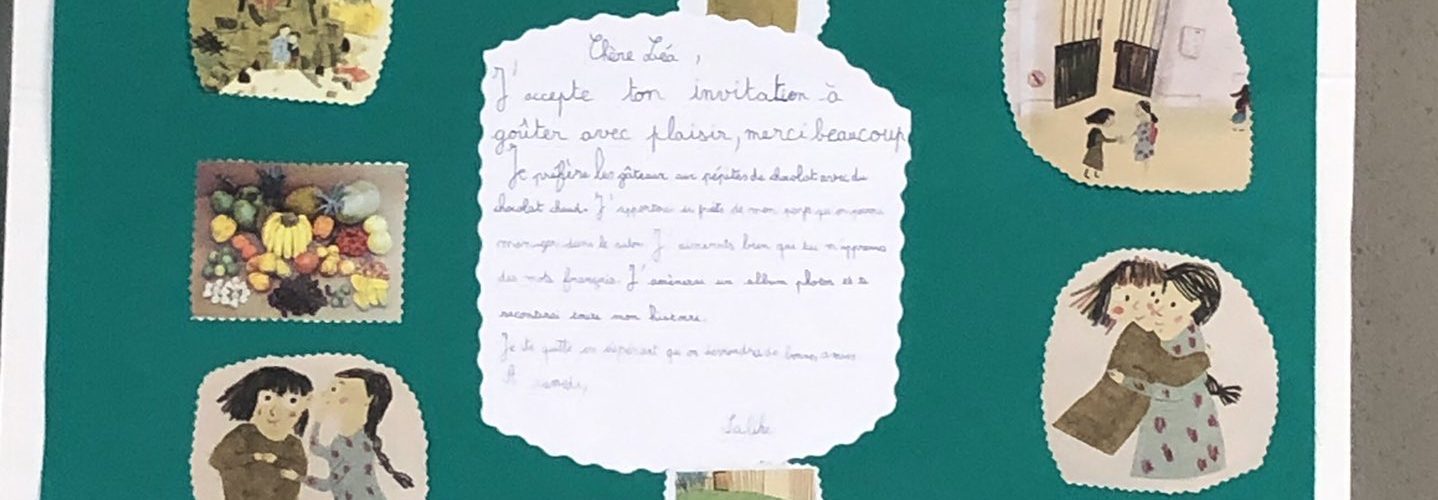 Chère Léa,
J'accepte ton invitation à
goûter avec plaisir, merci beaucoup
Je préfère les gâteaux aux pépites de chocolat avec du
chocolat chaud. J'apporterai des fruits de mon pays qu'on pourra
manger dans le salon. J'aimerais bien que tu m'apprennes
des mots français. J'amènerai un album photos et te
raconterai toute mon histoire.
Je te quitte en espérant qu'on deviendra de bonnes amies
A samedi,